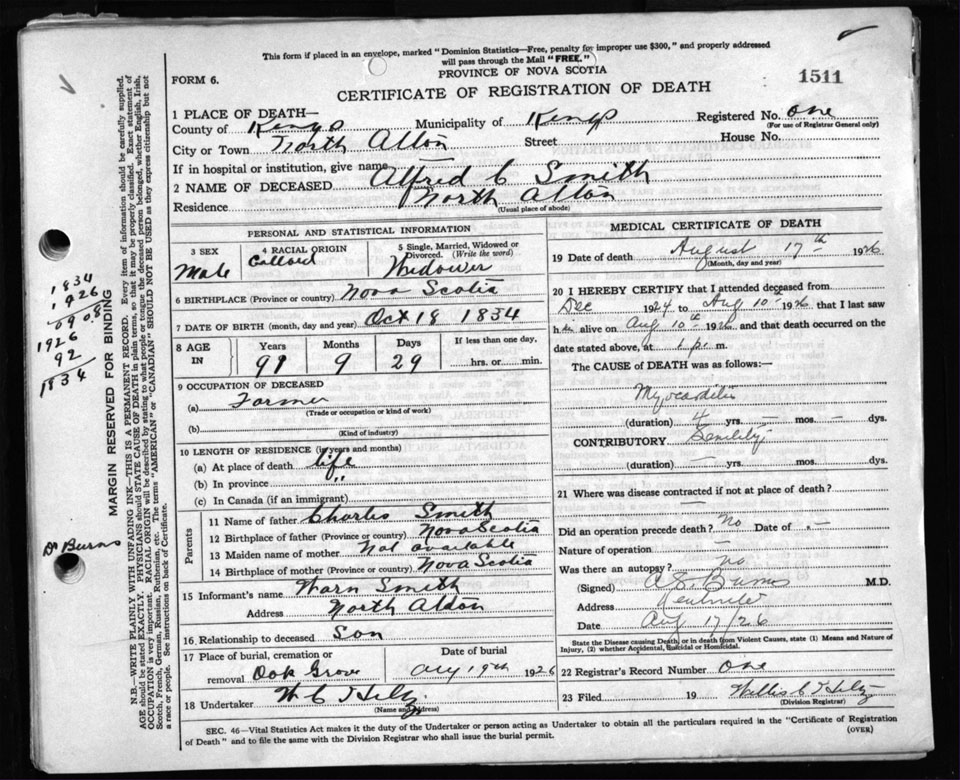 This form if placed in an envelope, marked "Dominion Statistics—Free, penalty for improper use $300," and properly addressed
will pass through the Mail "FREE."
PROVINCE OF NOVA SCOTIA
FORM 6.
1511
CERTIFICATE OF REGISTRATION OF DEATH
1 PLACE OF DEATH—
County of Kings Municipality of Kings Registered No. one
(For use of Registrar General only)
City or Town North Alton Street House No.
If in hospital or institution, give name —
2 NAME OF DECEASED Alfred C Smith
Residence North Alton
(Usual place of abode)
PERSONAL AND STATISTICAL INFORMATION
3 SEX Male
4 RACIAL ORIGIN Collord
5 Single, Married, Widowed or Divorced. (Write the word) Widower
6 BIRTHPLACE (Province or country) Nova Scotia
7 DATE OF BIRTH (month, day and year) Oct 18 1834
8 AGE IN Years Months Days If less than one day,
91 9 29 hrs. or min.
9 OCCUPATION OF DECEASED
(a) Farmer
(Trade or occupation or kind of work)
(b)
(Kind of industry)
10 LENGTH OF RESIDENCE (in years and months)
(a) At place of death life
(b) In province "
(c) In Canada (if an immigrant)
Parents
11 Name of father Charles Smith
12 Birthplace of father (Province or country) Nova Scotia
13 Maiden name of mother Not available
14 Birthplace of mother (Province or country) Nova Scotia
15 Informant's name Warn Smith
Address North Alton
16 Relationship to deceased Son
17 Place of burial, cremation or removal Oak Grove
Date of burial Aug 19th 1926
18 Undertaker W C Hiltz
(Name and address)
MEDICAL CERTIFICATE OF DEATH
19 Date of death August 17th 1926
(Month, day and year)
20 I HEREBY CERTIFY that I attended deceased from
Dec 1924 to Aug 10th 1926 that I last saw
him alive on Aug 10th 1926 and that death occurred on the
date stated above, at 1 p. m.
The CAUSE of DEATH was as follows:—
Myocarditis
(duration) 4 yrs. — mos. — dys.
CONTRIBUTORY Senility
(duration) — yrs. — mos. dys.
21 Where was disease contracted if not at place of death?
—
Did an operation precede death? No Date of —
Nature of operation —
Was there an autopsy? no
(Signed) Burns M.D.
Address Kentville
Date Aug 17/26
State the Disease causing Death, or in death from Violent Causes, state (1) Means and Nature of
Injury, (2) whether Accidental, Suicidal or Homicidal.
22 Registrar's Record Number One
23 Filed 19 Willis C Hiltz
(Division Registrar)
SEC. 46—Vital Statistics Act makes it the duty of the Undertaker or person acting as Undertaker to obtain all the particulars required in the "Certificate of Registration
of Death" and to file the same with the Division Registrar who shall issue the burial permit.
(OVER)
MARGIN RESERVED FOR BINDING
N.B.—WRITE PLAINLY WITH UNFADING INK—THIS IS A PERMANENT RECORD. Every item of information should be carefully supplied.
AGE should be stated EXACTLY. PHYSICIANS should STATE CAUSE OF DEATH in plain terms, so that it may be properly classified. Exact statement of
OCCUPATION is very important. RACIAL ORIGIN will be described by stating to what people or tongue the deceased person belonged, whether English, Irish,
Scotch, French, German, Russian, Ruthenian, etc. The terms "AMERICAN" or "CANADIAN" SHOULD NOT BE USED as they express citizenship but not
a race or people. See instructions on back of Certificate.
1834
1926
1926
92
1834
Dr Burns